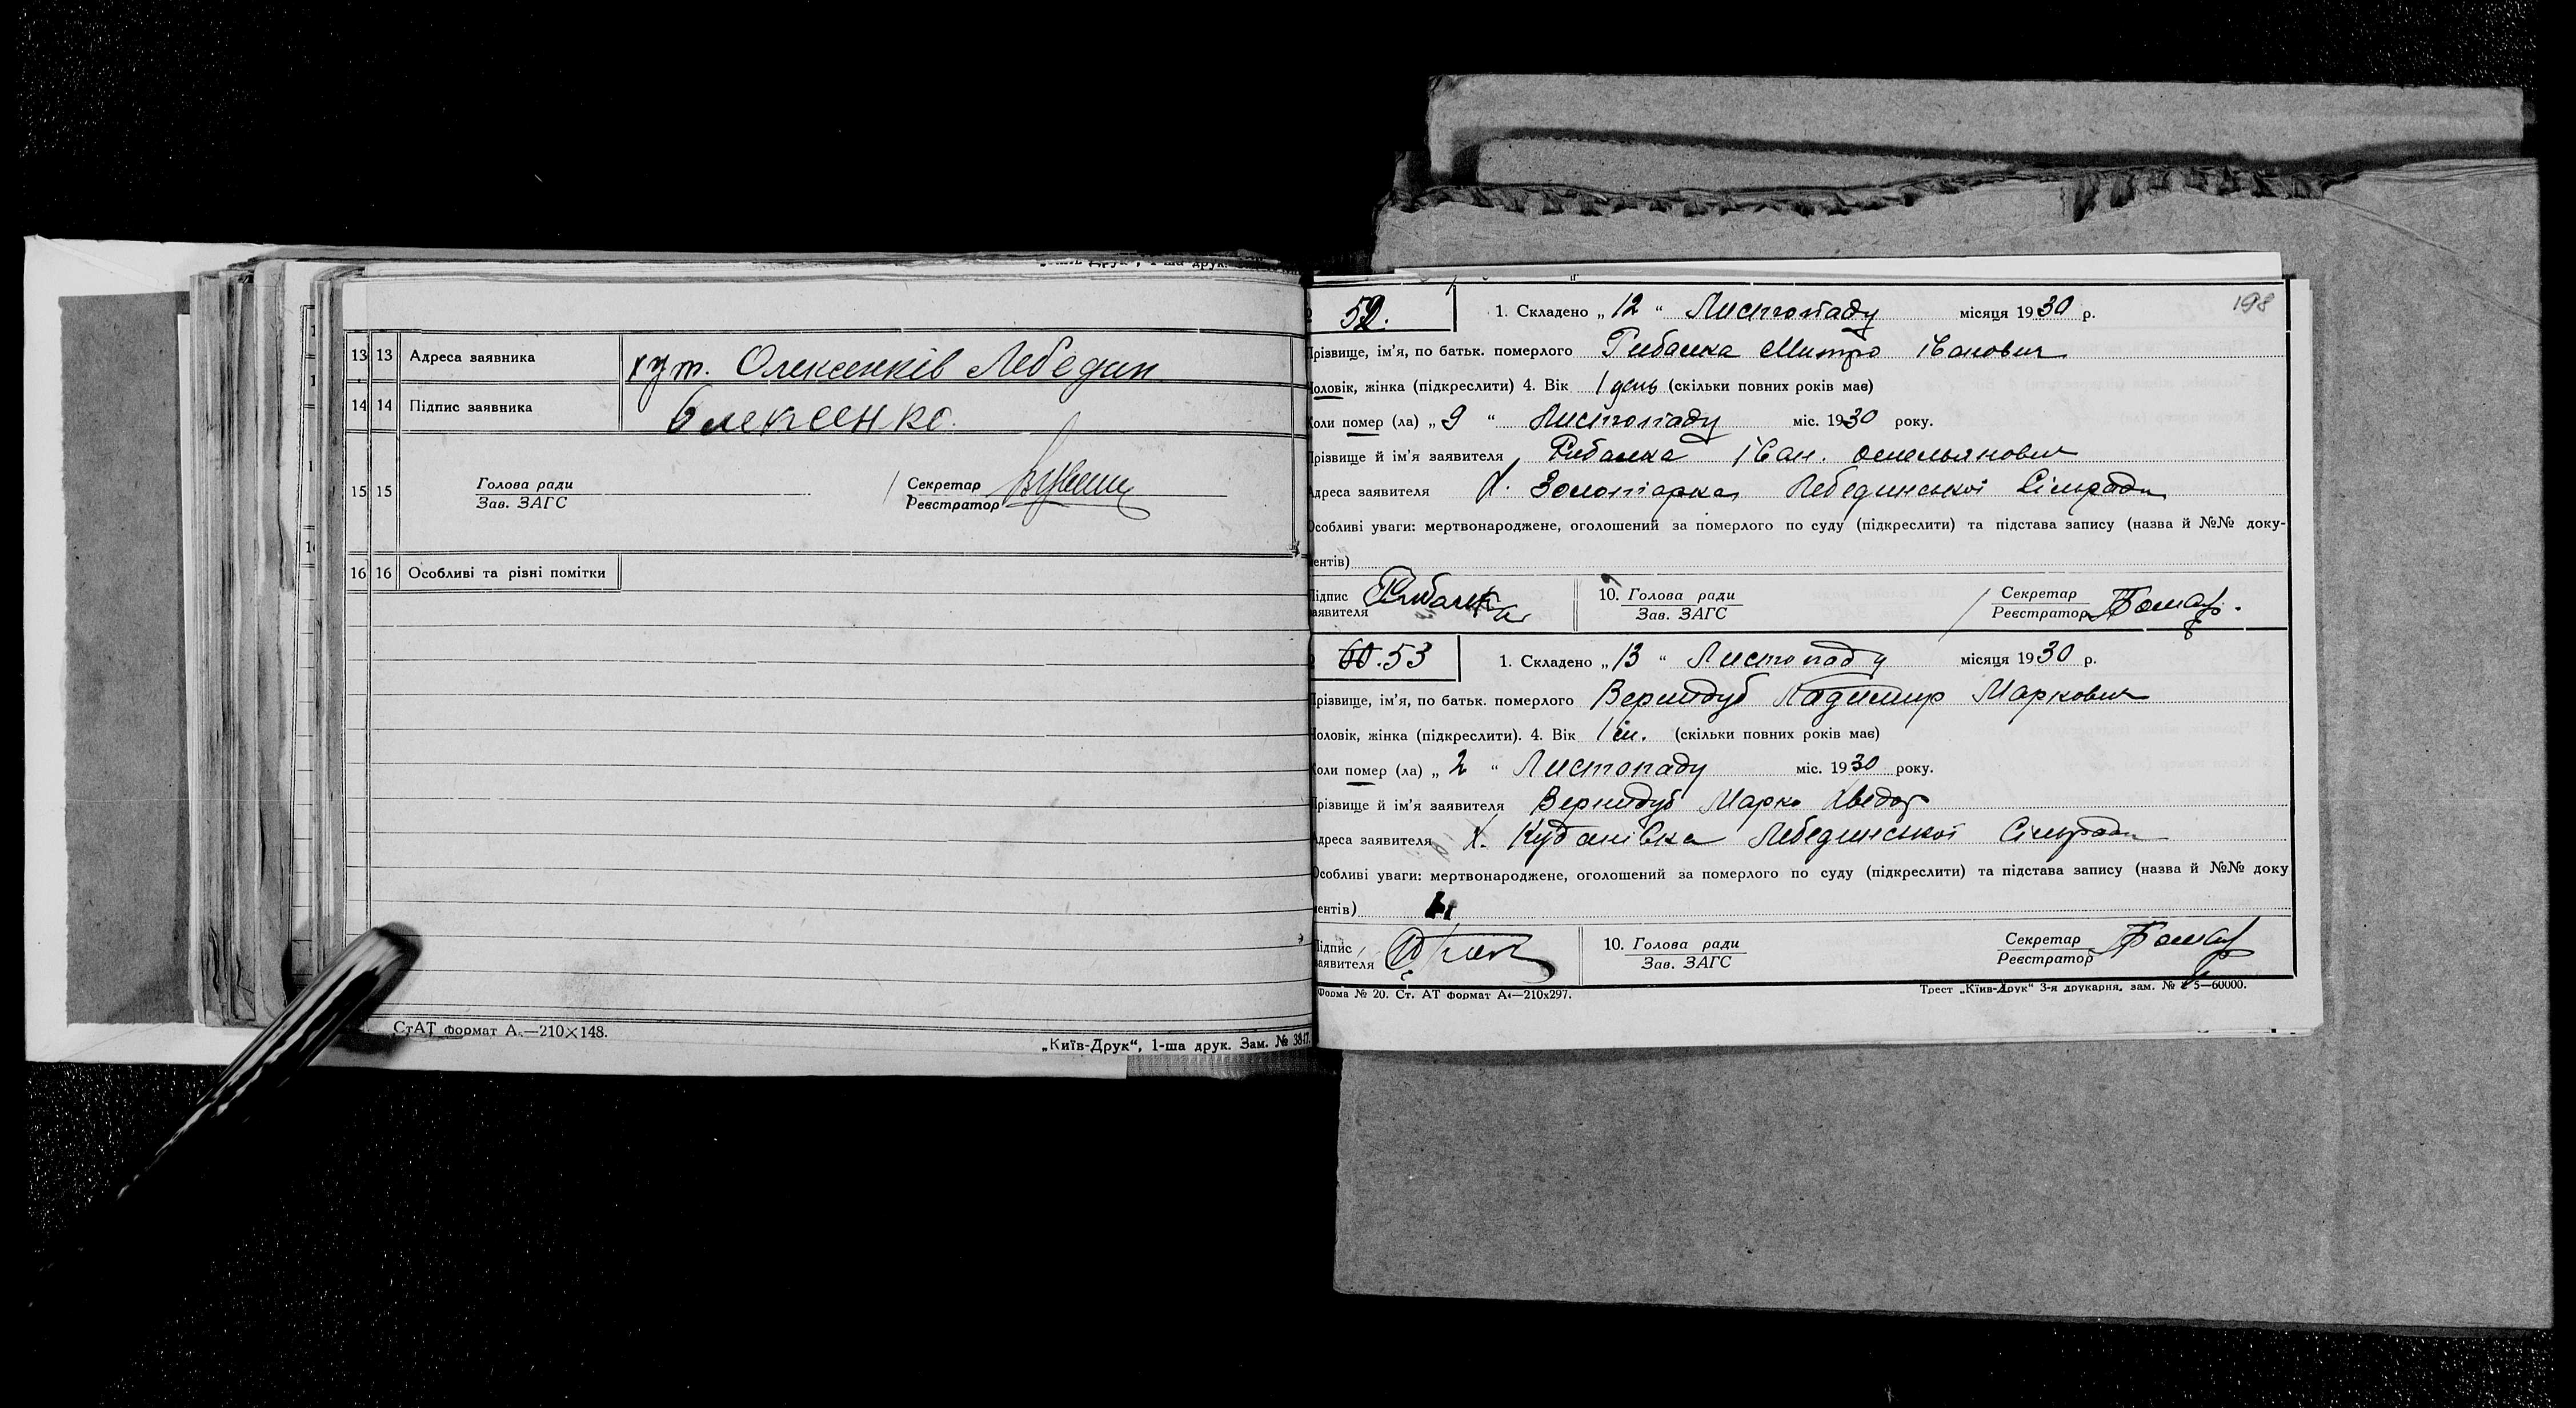 13 13 Адреса заявника хут. Олексенків Лебедин
14 14 Підпис заявника Олексенко.
15 15 Голова ради
Зав. ЗАГС
Секретар
Реєстратор
16 16 Особливі та різні помітки
СтАТ формат А₅—210×148.
„Київ-Друк“, 1-ша друк. Зам. № 3847.
198
52. 1. Складено „12“ Листопаду місяця 1930 р.
Прізвище, ім'я, по батьк. померлого Рибалка Митро Іванович
Чоловік, жінка (підкреслити) 4. Вік 1 день (скільки повних років має)
Коли помер (ла) „9“ Листопаду міс. 1930 року.
Прізвище й ім'я заявителя Рибалка Іван. Омельянович
Адреса заявителя Х. Золотарка Лебединської Сільради
Особливі уваги: мертвонароджене, оголошений за померлого по суду (підкреслити) та підстава запису (назва й №№ доку-
ментів)
Підпис заявителя Рибалка 10. Голова ради
Зав. ЗАГС
Секретар
Реєстратор
60. 53 1. Складено „13“ Листопаду місяця 1930 р.
Прізвище, ім'я, по батьк. померлого Вернидуб Ладимир Маркович
Чоловік, жінка (підкреслити). 4. Вік 1 (скільки повних років має)
Коли помер (ла) „2“ Листопаду міс. 1930 року.
Прізвище й ім'я заявителя Вернидуб Марко Хведор
Адреса заявителя Х. Куданівка Лебединської Сільради
Особливі уваги: мертвонароджене, оголошений за померлого по суду (підкреслити) та підстава запису (назва й №№ доку
ментів)
Підпис заявителя 10. Голова ради
Зав. ЗАГС
Секретар
Реєстратор
Форма № 20. Ст. АТ формат А₄—210х297.
Трест „Київ-Друк“ 3-я друкарня, зам. № 5—60000.